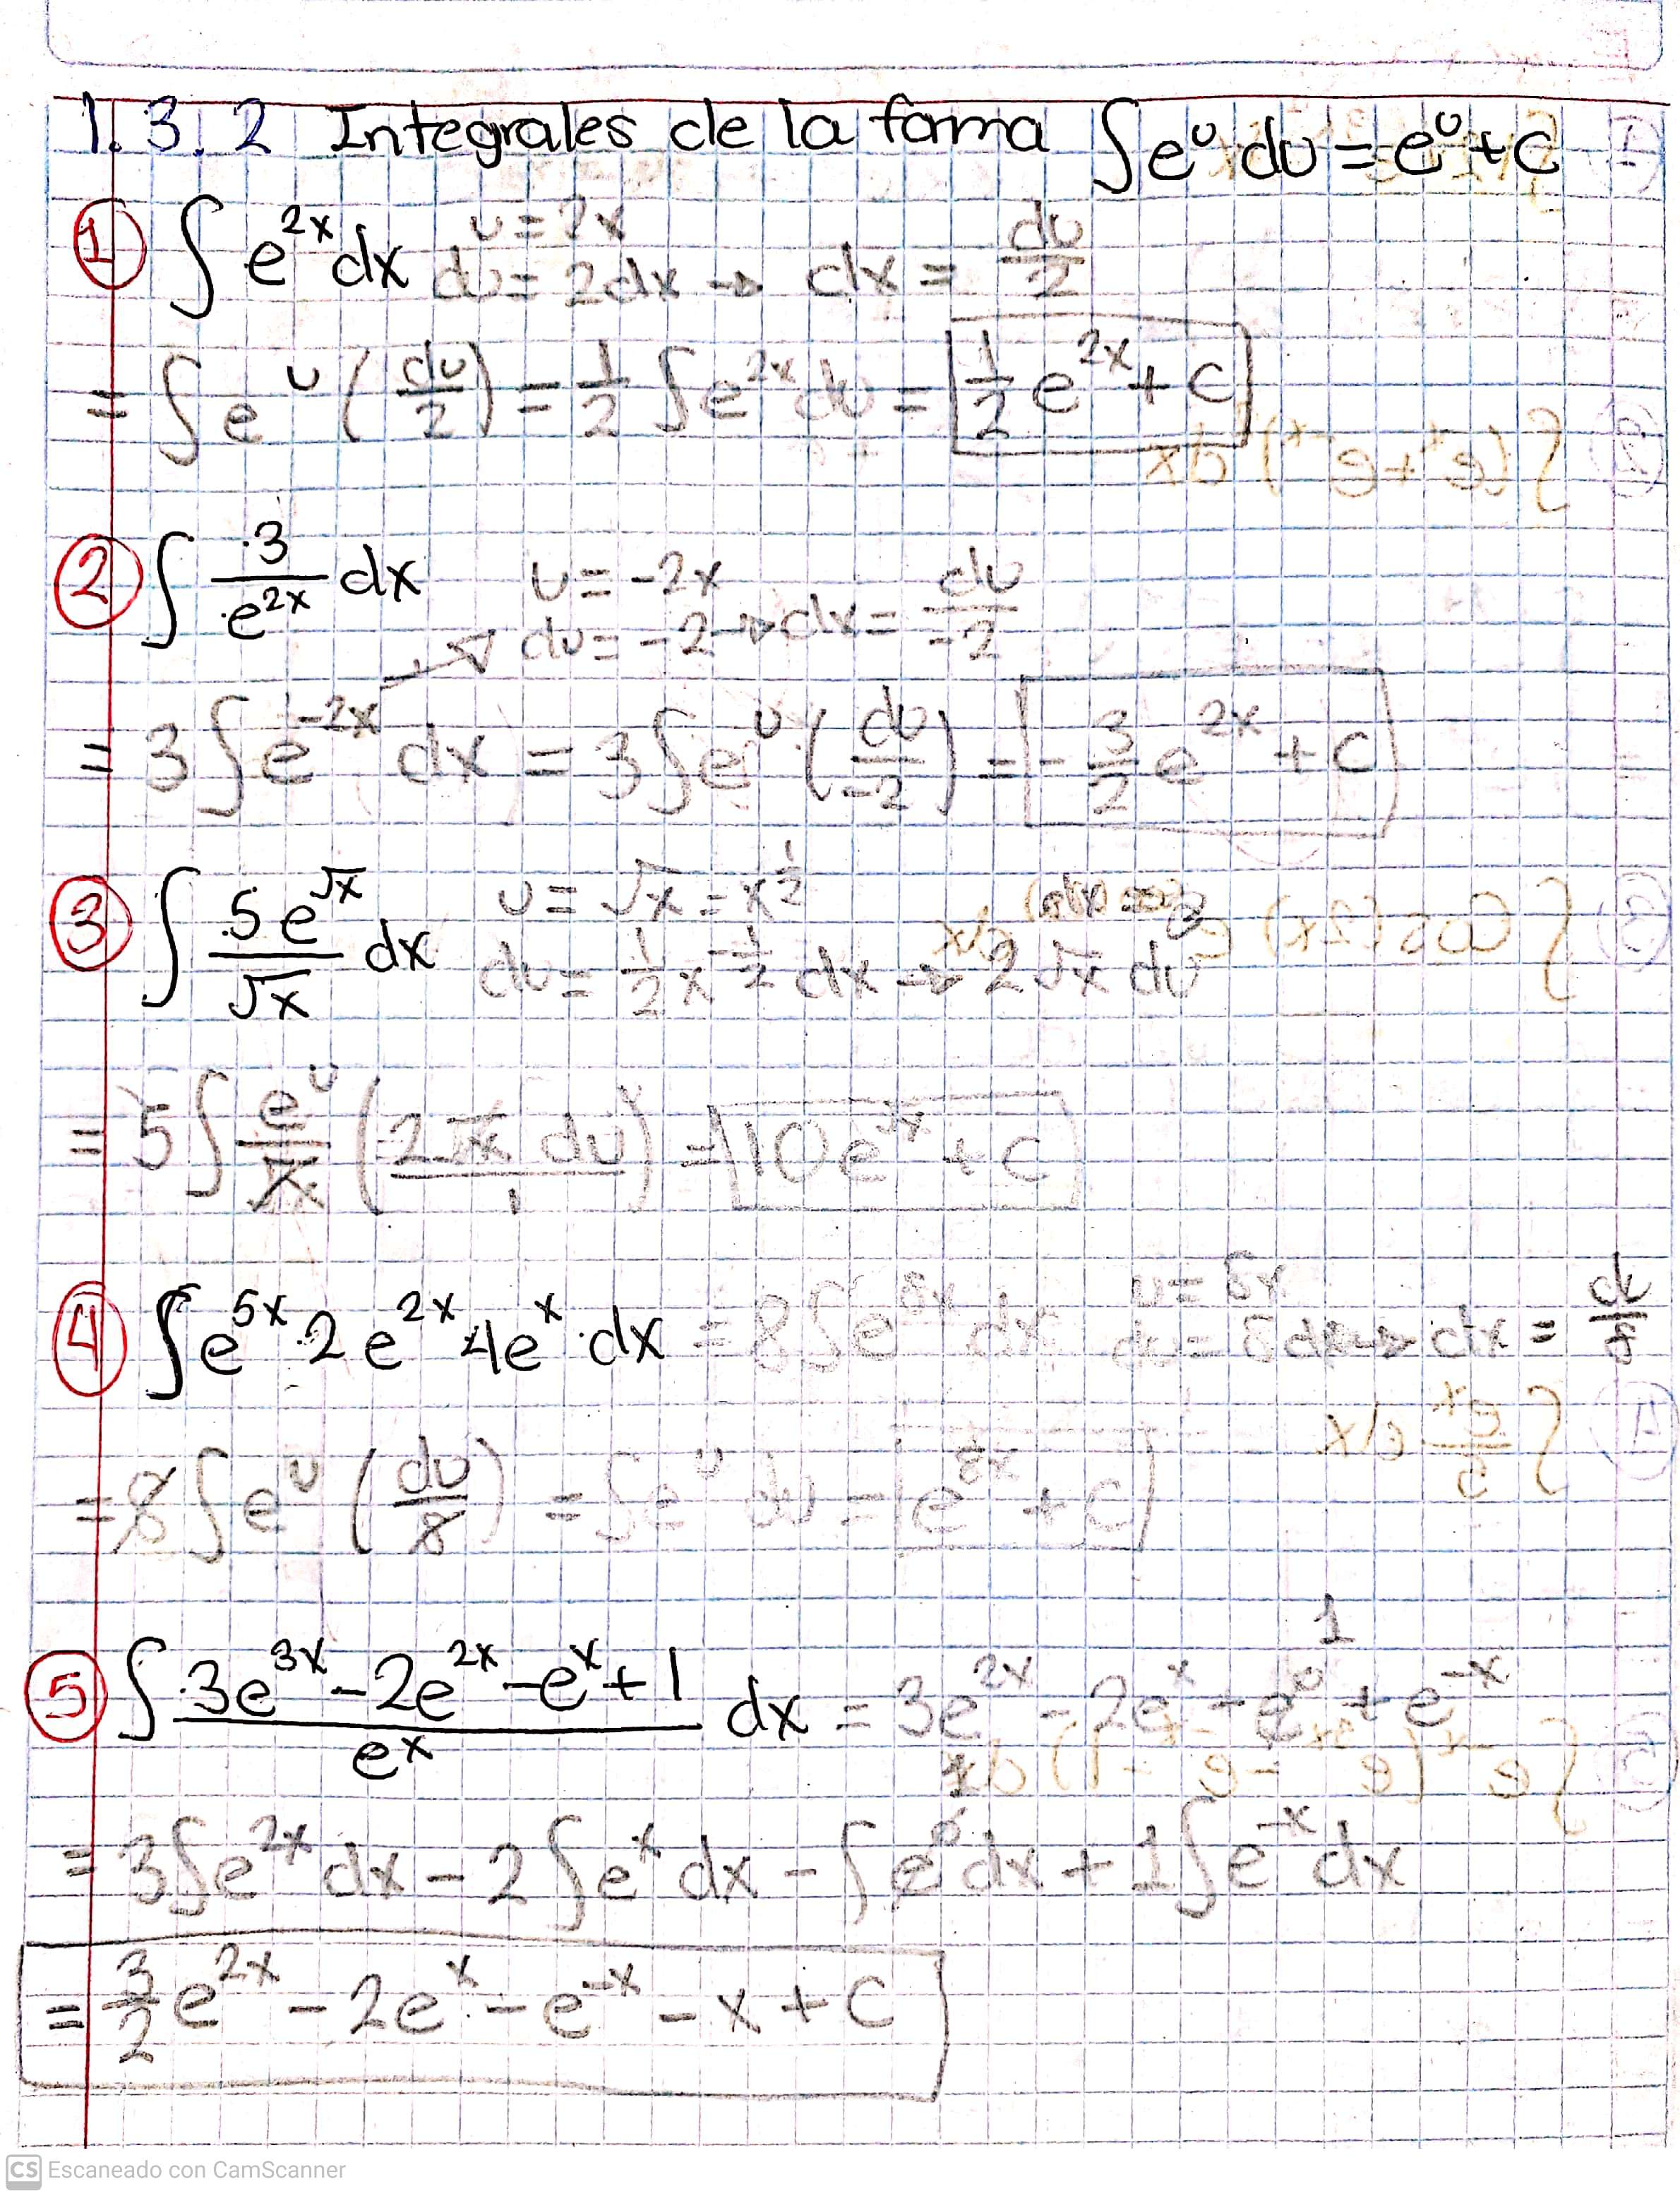 1.3.2 Integrales de la forma ∫e^u du = e^u + C
① ∫ e^{2x} dx u = 2x
du = 2dx → dx = du/2
= ∫ e^u (du/2) = 1/2 ∫ e^{2x} du = 1/2 e^{2x} + C
② ∫ 3/e^{2x} dx u = -2x
du = -2 → dx = du/-2
= 3 ∫ e^{-2x} dx = 3 ∫ e^u (du/-2) = - 3/2 e^{2x} + C
③ ∫ 5e^{√x}/√x dx u = √x = x^{1/2} dx =
du = 1/2 x^{-1/2} dx → 2√x du
= 5 ∫ e^u/√x (2√x du/1) = 10e^{√x} + C
④ ∫ e^{5x} · 2e^{2x} · 4e^x · dx = 8 ∫ e^{8x} dx u = 8x
du = 8dx → dx = du/8
= 8 ∫ e^u (du/8) = ∫ e^u du = e^{8x} + C
⑤ ∫ 3e^{3x} - 2e^{2x} - e^x + 1 / e^x dx = 3e^{2x} - 2e^x - e^0 + e^{-x}
= 3∫e^{2x} dx - 2∫e^x dx - ∫e^0 dx + 1∫e^{-x} dx
= 3/2 e^{2x} - 2e^x - e^{-x} - x + C
CS Escaneado con CamScanner